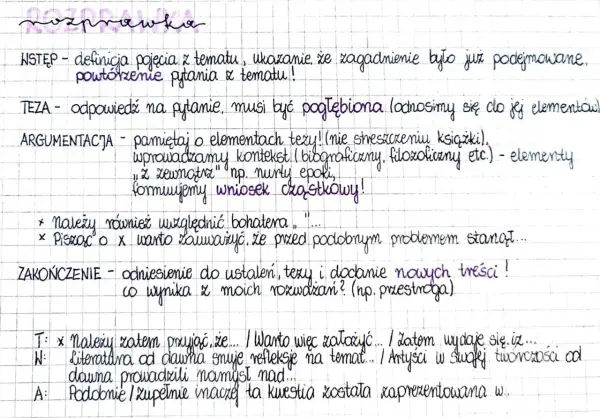 rozprawka
WSTĘP - definicja pojęcia z tematu, ukazanie, że zagadnienie było już podejmowane,
powtórzenie pytania z tematu!
TEZA - odpowiedź na pytanie, musi być pogłębiona (odnosimy się do jej elementów)
ARGUMENTACJA - pamiętaj o elementach tezy! (nie streszczeniu książki),
wprowadzamy kontekst (biograficzny, filozoficzny etc.) - elementy
"z zewnątrz" np. nurty epoki,
formułujemy wniosek cząstkowy!
x Należy również uwzględnić bohatera „ "...
x Pisząc o x warto zauważyć, że przed podobnym problemem stanął...
ZAKOŃCZENIE - odniesienie do ustaleń, tezy i dodanie nowych treści!
co wynika z moich rozważań? (np. przestroga)
T: x Należy zatem przyjąć, że... / Warto więc założyć... / Zatem wydaje się, iż...
W: Literatura od dawna snuje refleksje na temat... / Artyści w swojej twórczości od
dawna prowadzili namysł nad...
A: Podobnie / zupełnie inaczej ta kwestia została zaprezentowana w...